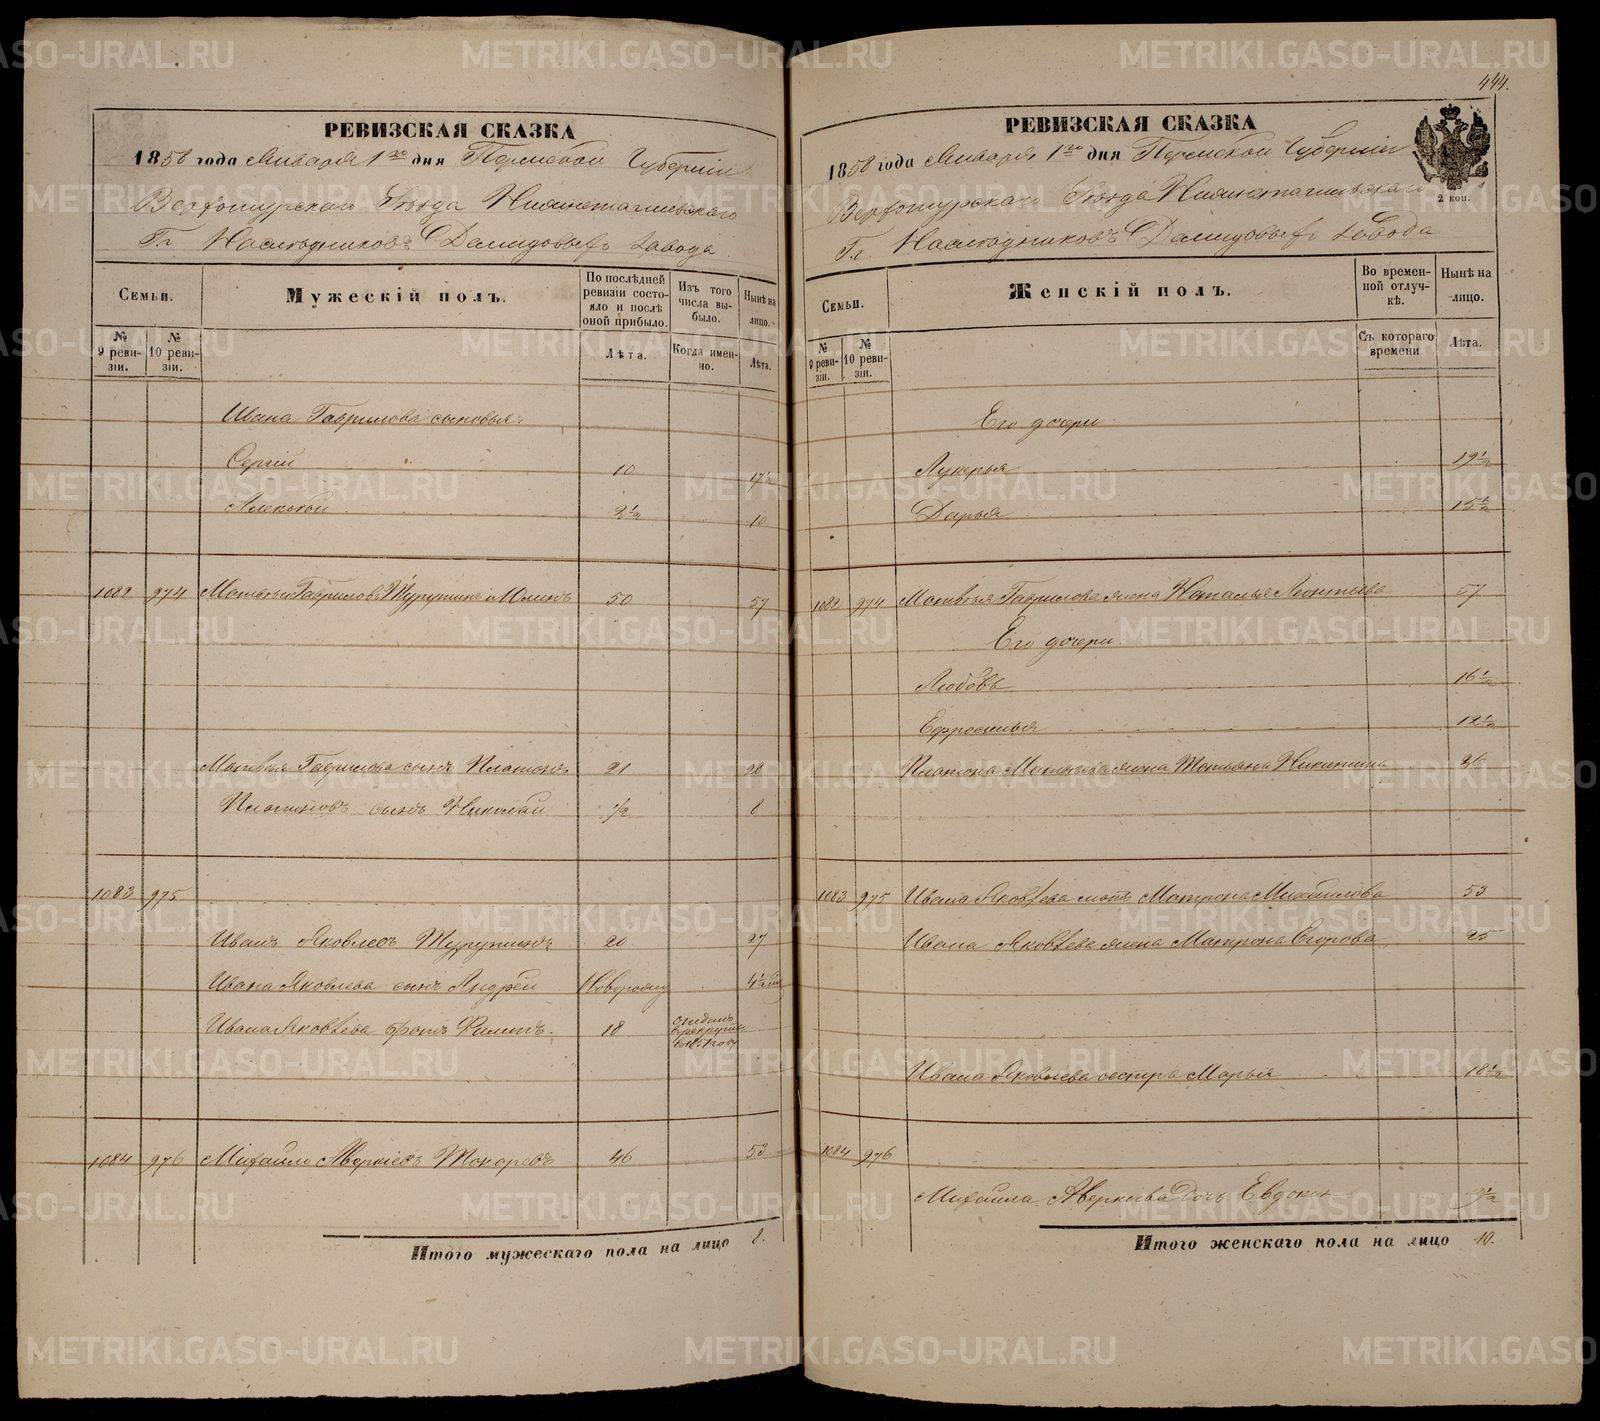 444.
РЕВИЗСКАЯ СКАЗКА
1858 года Января 1го дня Пермской Губернии
Верхотурскаго Уѣзда Нижнетагильскаго
Гг. Наслѣдниковъ Демидовыхъ завода
Семьи.
Мужескій полъ.
По послѣдней ревизіи состояло и послѣ оной прибыло.
Изъ того числа выбыло.
Нынѣ на лицо.
№ 9 ревизіи.
№ 10 ревизіи.
Лѣта.
Когда именно.
Лѣта.
Ивана Гаврилова сыновья:
Сергій 10 17½
Алексѣй 2½ 10
1082 974 Матвѣй Гавриловъ Турутинъ 50 57
Матвѣя Гаврилова сынъ Платонъ 21 28
Платоновъ сынъ Николай ½ 8
1083 975
Иванъ Яковлевъ Турутинъ 20 27
Ивана Яковлева сынъ Андрей Новорожд 4½
Ивана Яковлева братъ Филипъ 18 отданъ въ рекруты въ 1851 году
1084 976 Михайло Аверкіевъ Токаревъ 46 53
Итого мужескаго пола на лицо 8.
РЕВИЗСКАЯ СКАЗКА
1858 года Января 1го дня Пермской Губерніи
2 коп.
Верхотурскаго Уѣзда Нижнетагильскаго
Гг. Наслѣдниковъ Демидовыхъ завода
Семьи.
Женскій полъ.
Во временной отлучкѣ.
Нынѣ на лицо.
№ 9 ревизіи.
№ 10 ревизіи.
Съ котораго времени
Лѣта.
Его дочери
Лукерья 19½
Дарья 15½
1082 974 Матвѣя Гаврилова жена Наталья Леонтьева 57
Его дочери
Любовь 16½
Ефросинья 12½
Платона Матвѣева жена Татьяна Никитина 26
1083 975 Ивана Яковлева мать Матрена Михайлова 53
Ивана Яковлева жена Матрона Егорова 25
Ивана Яковлева сестра Марья 18½
1084 976
Михайла Аверкіева дочь Евдокія 9½
Итого женскаго пола на лицо 10.
METRIKI.GASO-URAL.RU